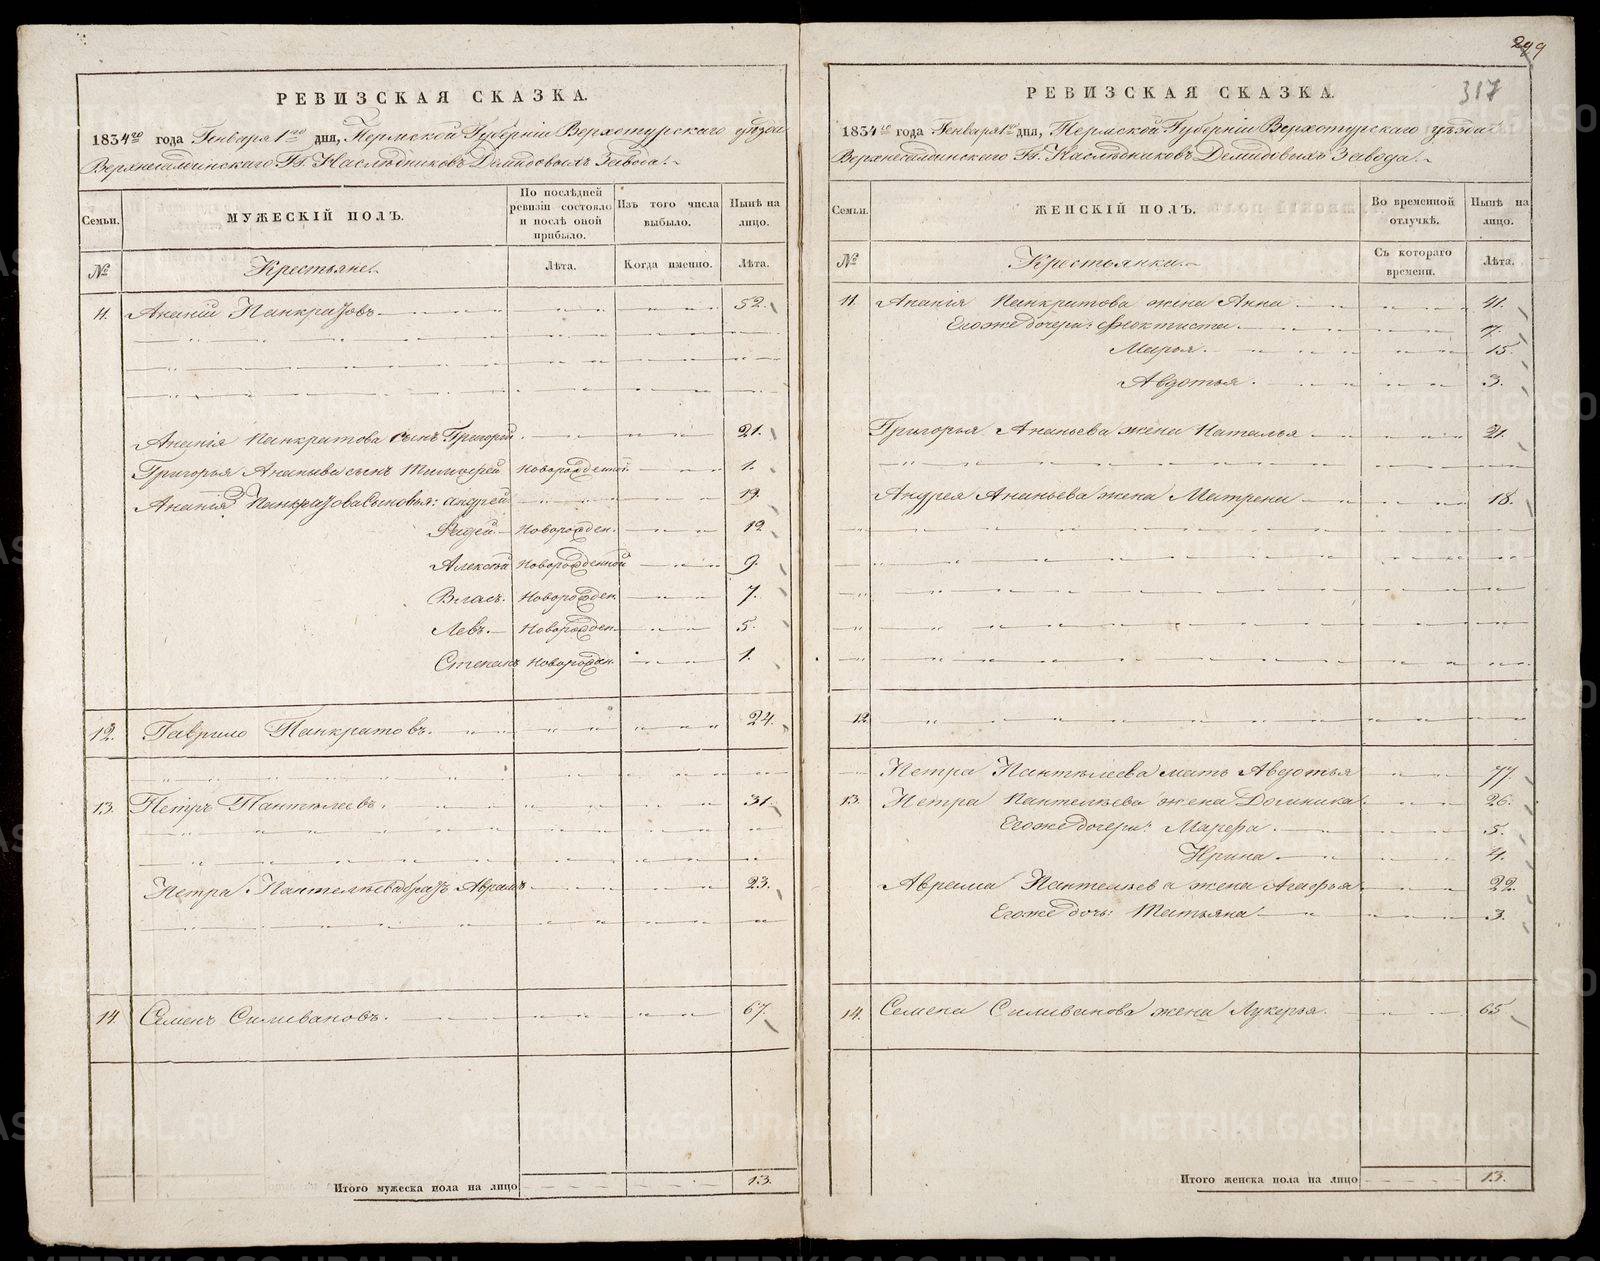 РЕВИЗСКАЯ СКАЗКА.
1834го года Генваря 1го дня, Пермской Губернiи Верхотурскаго уѣзда
Гг. Наслѣдниковъ Демидовыхъ Завода.
Семьи.
МУЖЕСКIЙ ПОЛЪ.
По послѣдней ревизiи состояло и послѣ оной прибыло.
Изъ того числа выбыло.
Нынѣ на лицо.
№
Крестьяне.
Лѣта.
Когда именно.
Лѣта.
11. Ананiй Панкратовъ 52.
Ананiя Панкратова сынъ Григорей 21.
Григорья Ананьева сынъ Тимофей Новорожденной 1.
Ананiя Панкратова Сыновья: Андрей 19.
Новорожден. 12
Алексѣй Новорожденной 9.
Власъ. Новорожден. 7.
Левъ. Новорожден. 5.
Степанъ Новорожден. 1.
12. Гаврило Панкратовъ. 24.
13. Петръ Пантелеевъ. 31.
Петра Пантелѣева братъ Аврамъ 23.
14. Семенъ Силивановъ. 67.
Итого мужеска пола на лицо 13.
299
317
РЕВИЗСКАЯ СКАЗКА.
1834го года Генваря 1го дня, Пермской Губернiи Верхотурскаго уѣзда
Гг. Наслѣдниковъ Демидовыхъ Завода.
Семьи.
ЖЕНСКIЙ ПОЛЪ.
Во временной отлучкѣ.
Нынѣ на лицо.
№
Крестьянки.
Съ котораго времени.
Лѣта.
11. Ананiя Панкратова жена Анна 41.
Егоже дочери: Феоктиста 7.
Марья. 15.
Авдотья. 3.
Григорья Ананьева жена Наталья 21.
Андрея Ананьева жена Матрена 18.
12
Петра Пантелеева мать Авдотья 77.
13. Петра Пантелѣева жена Домника 26.
Егоже дочери: Марфа. 5.
Ирина. 4.
Аврама Пантелѣева жена Агафья 22.
Егоже дочь: Татьяна 3.
14. Семена Силиванова жена Лукерья. 65
Итого женска пола на лицо 13.
METRIKI.GASO-URAL.RU